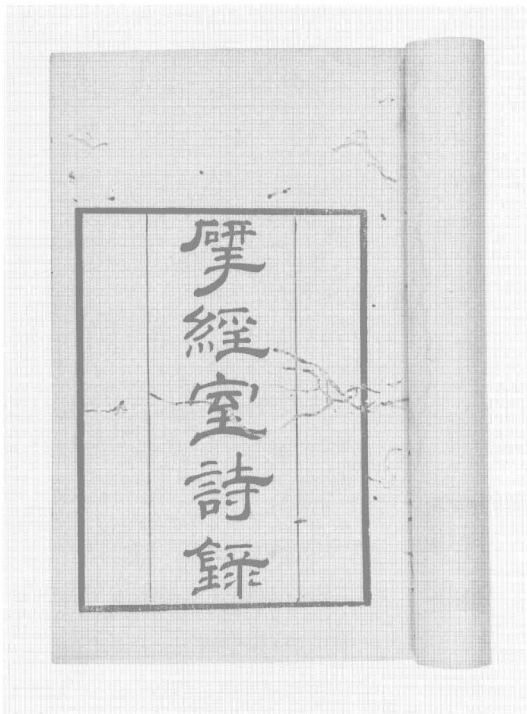 揅經室詩錄